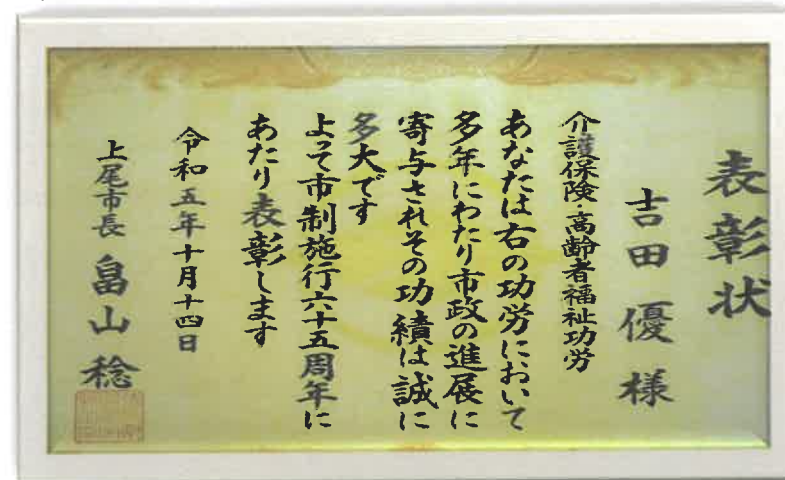 表彰状
吉田優様
介護保険・高齢者福祉功労
あなたは右の功労において
多年にわたり市政の進展に
寄与されその功績は誠に
多大です
よって市制施行六十五周年に
あたり表彰します
令和五年十月十四日
上尾市長 畠山稔